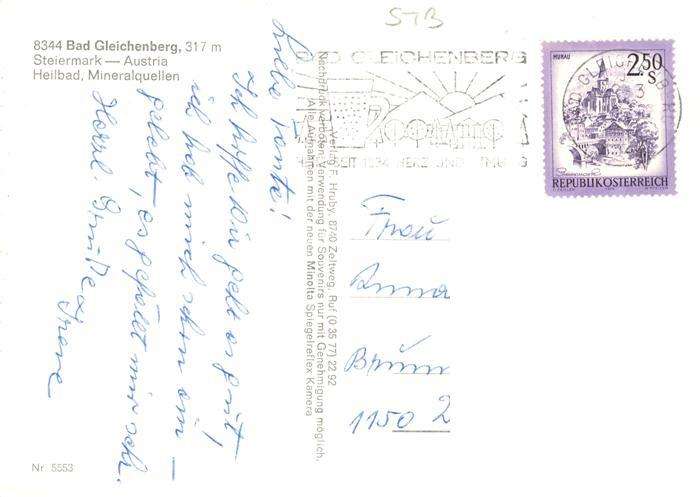 STB
8344 Bad Gleichenberg, 317 m
Steiermark — Austria
Heilbad, Mineralquellen
Liebe Tante!
Ich hoffe Dir geht es gut,
ich hab mich schon ein –
gelebt, es gefällt mir sehr.
Herzl. Grüße
Irene
Nr. 5553
Verlag F. Hruby, 8740 Zeltweg, Ruf (0 35 77) 22 92
Nachdruck verboten, Verwendung für Souvenirs nur mit Genehmigung möglich.
Alle Aufnahmen mit der neuen Minolta Spiegelreflex Kamera
BAD GLEICHENBERG
SEIT 1834 HERZ UND ATMUNG
MURAU
2.50
S
REPUBLIK ÖSTERREICH
Frau
Anna
1150 2